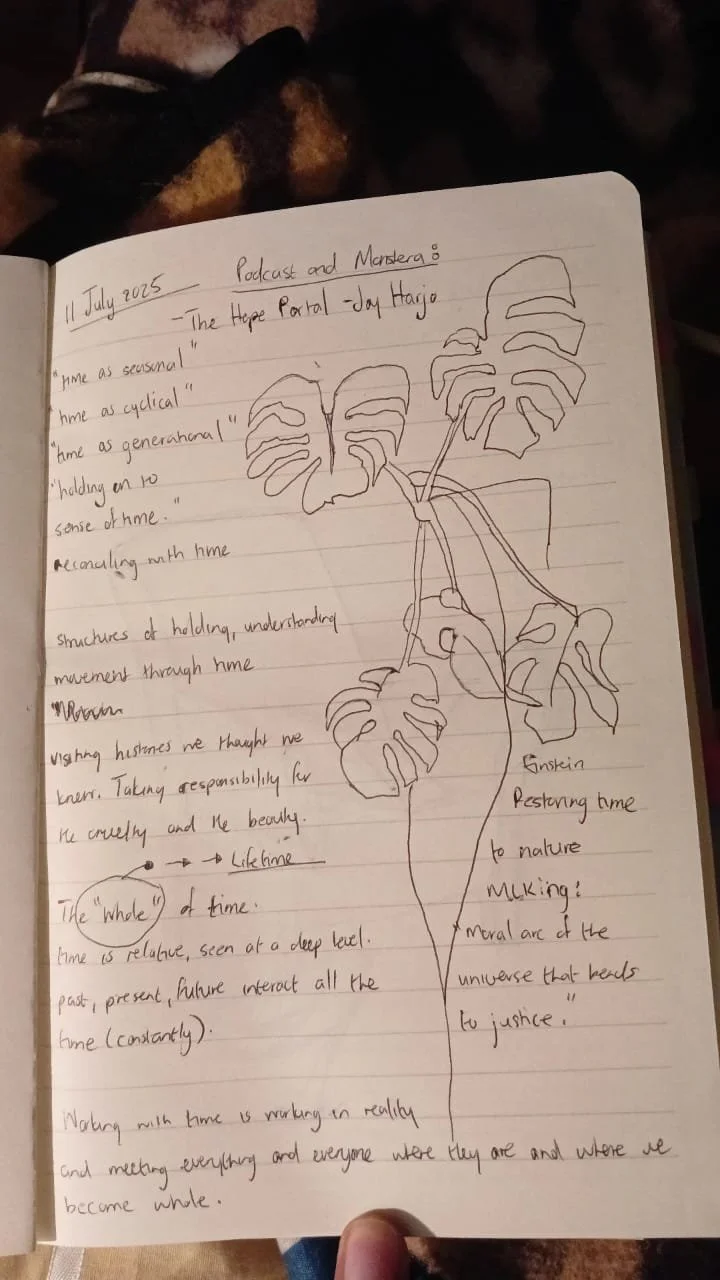 11 July 2025
Podcast and Monstera:
- The Hope Portal - Joy Harjo
"time as seasonal"
"time as cyclical"
"time as generational"
"holding on to
sense of time."
reconciling with time
structures of holding, understanding
movement through time
visiting histories we thought we
knew. Taking responsibility for
the cruelty and the beauty.
Lifetime
The "whole" of time.
time is relative, seen at a deep level.
past, present, future interact all the
time (constantly).
Einstein
Restoring time
to nature
MLKing:
"moral arc of the
universe that bends
to justice."
Working with time is working in reality
and meeting everything and everyone where they are and where we
become whole.